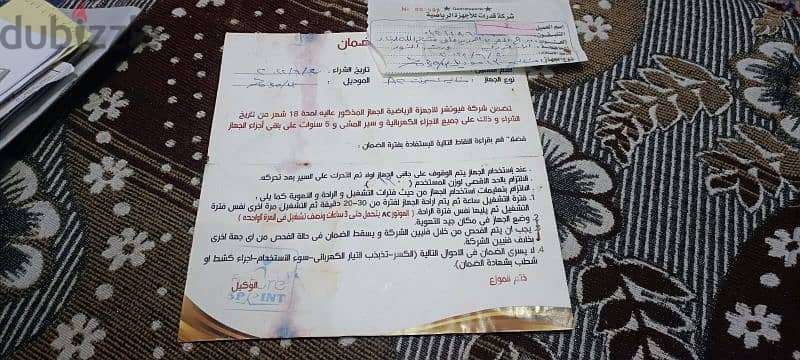 dubizzle
No
شركة قدرت للأجهزة الرياضية
الضمان
تاريخ الشراء :
نوع الجهاز : AC
الموديل :
تضمن شركة فيوتشر للاجهزة الرياضية الجهاز المذكور عاليه لمدة 18 شهر من تاريخ
الشراء و ذلك على جميع الاجزاء الكهربائية و سير المشى و 5 سنوات على باقى أجزاء الجهاز
فضلا" قم بقراءة النقاط التالية للإستفادة بفترة الضمان :
عند إستخدام الجهاز يتم الوقوف على جانبى الجهاز اولا ثم التحرك على السير بعد تحركه.
الالتزام بالحد الاقصى لوزن المستخدم
الالتزام بتعليمات استخدام الجهاز من حيث فترات التشغيل و الراحة و التهوية كما يلى :
1. فترة التشغيل ساعة ثم يتم اراحة الجهاز لفترة من 20-30 دقيقة ثم التشغيل مرة اخرى نفس فترة
التشغيل ثم يليها نفس فترة الراحة. ( الموتور AC يتحمل حتى 3 ساعات ونصف تشغيل فى المرة الواحده )
2. وضع الجهاز فى مكان جيد التهوية.
3. يجب ان يتم الفحص من خلال فنيين الشركة و يسقط الضمان فى حالة الفحص من اى جهة اخرى
بخلاف فنيين الشركة.
4. لا يسرى الضمان فى الاحوال التالية (الكسر-تذبذب التيار الكهربائى-سوء الاستخدام-اجراء كشط او
شطب بشهادة الضمان).
ختم الموزع
الوكيل
POINT